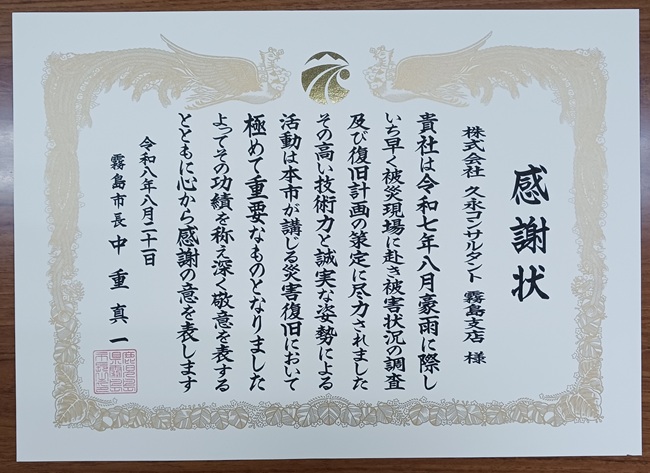 感謝状
株式会社 久永コンサルタント 霧島支店 様
貴社は令和七年八月豪雨に際し
いち早く被災現場に赴き被害状況の調査
及び復旧計画の策定に尽力されました
その高い技術力と誠実な姿勢による
活動は本市が講じる災害復旧において
極めて重要なものとなりました
よってその功績を称え深く敬意を表する
とともに心から感謝の意を表します
令和八年八月二十一日
霧島市長 中重真一